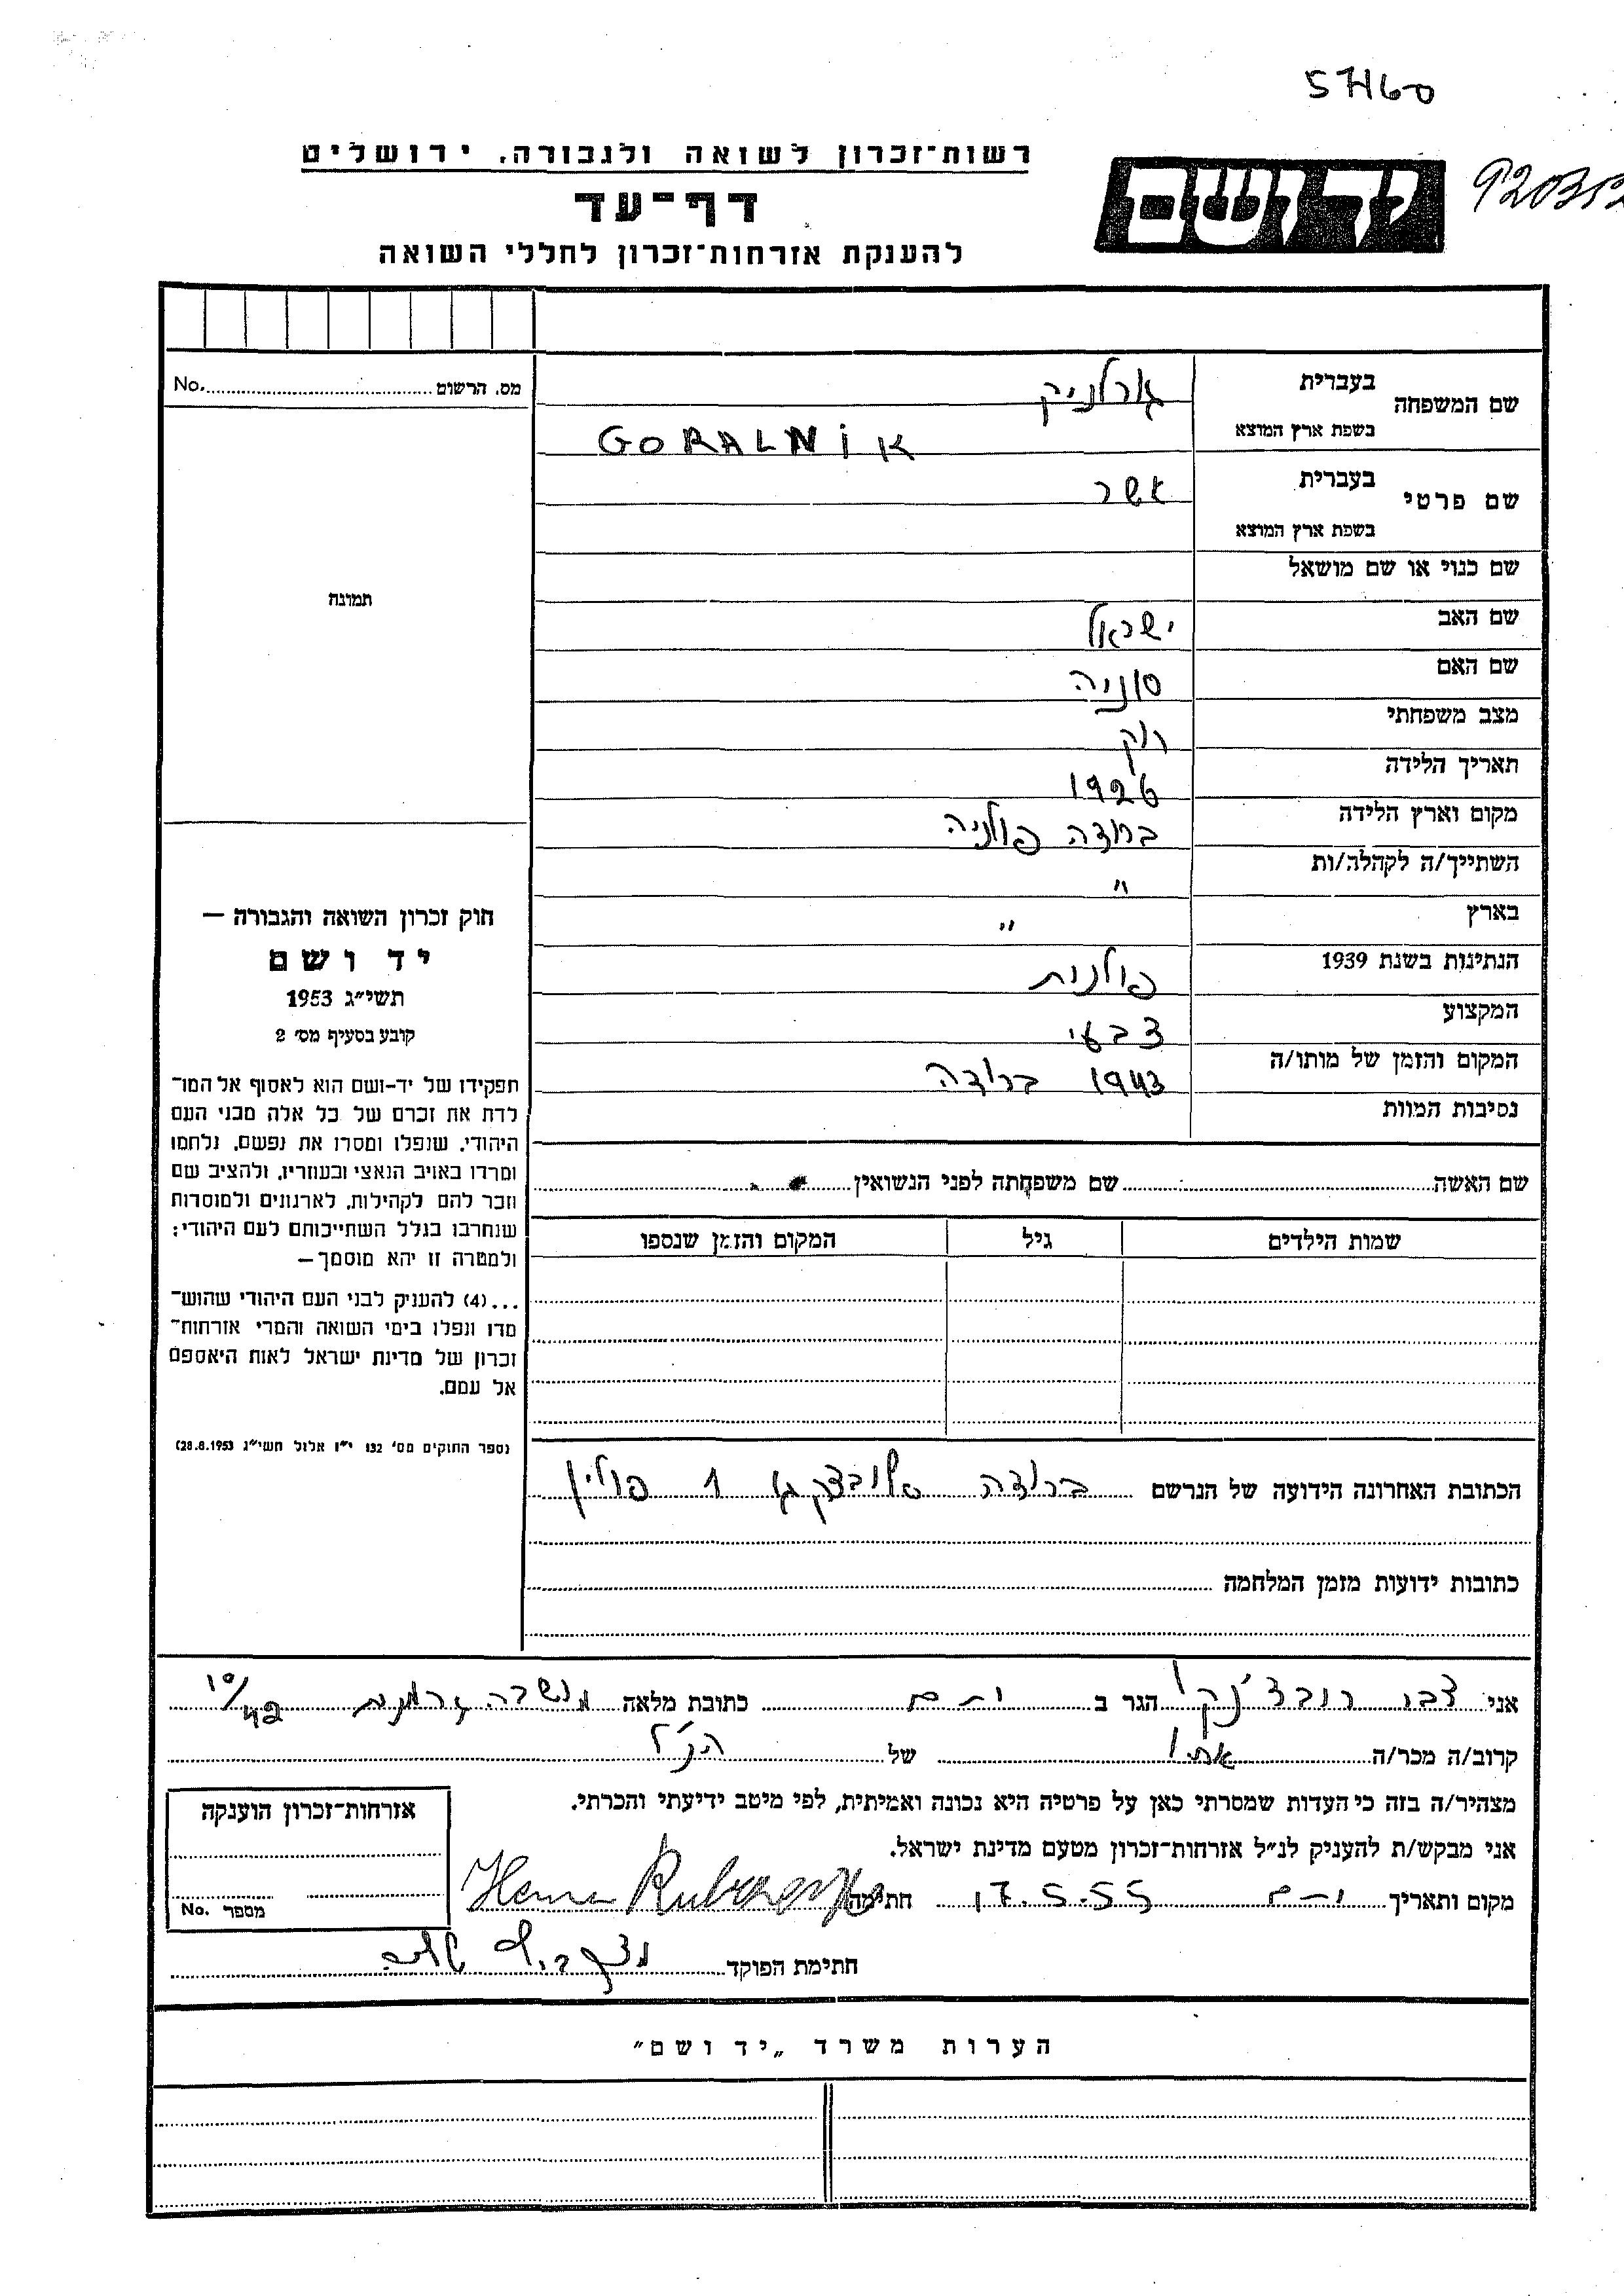 57160
רשות־זכרון לשואה ולגבורה, ירושלים
יד ושם
דף־עד
להענקת אזרחות־זכרון לחללי השואה
שם המשפחה
בעברית
גרלניק
בשפת ארץ המוצא
GORALNIK
שם פרטי
בעברית
אשר
בשפת ארץ המוצא
שם כנוי או שם מושאל
שם האב ישראל
שם האם סוניה
מצב משפחתי רווק
תאריך הלידה 1926
מקום וארץ הלידה ברודה פולניה
השתייך/ה לקהלה/ות "
בארץ "
הנתינות בשנת 1939 פולנית
המקצוע צבעי
המקום והזמן של מותו/ה 1943 ברודה
נסיבות המוות
מס. הרשום No.
תמונה
חוק זכרון השואה והגבורה —
יד ושם
תשי״ג 1953
קובע בסעיף מס׳ 2
תפקידו של יד-ושם הוא לאסוף אל המו־
לדת את זכרם של כל אלה מבני העם
היהודי, שנפלו ומסרו את נפשם, נלחמו
ומרדו באויב הנאצי ובעוזריו, ולהציב שם
וזכר להם לקהילות, לארגונים ולמוסדות
שנחרבו בגלל השתייכותם לעם היהודי;
ולמטרה זו יהא מוסמך—
...(4) להעניק לבני העם היהודי שהוש־
מדו ונפלו בימי השואה והמרי אזרחות־
זכרון של מדינת ישראל לאות היאספם
אל עמם.
(ספר החוקים מס׳ 132 י״ז אלול תשי״ג 28.8.1953)
שם האשה שם משפחתה לפני הנשואין
שמות הילדים גיל המקום והזמן שנספו
הכתובת האחרונה הידועה של הנרשם ברודה 1 פולין
כתובות ידועות מזמן המלחמה
אני צבי הגר ב כתובת מלאה
קרוב/ה מכר/ה של הנ״ל
מצהיר/ה בזה כי העדות שמסרתי כאן על פרטיה היא נכונה ואמיתית, לפי מיטב ידיעתי והכרתי.
אני מבקש/ת להעניק לנ״ל אזרחות־זכרון מטעם מדינת ישראל.
מקום ותאריך 17.5.55 חתימה
חתימת הפוקד
אזרחות־זכרון הוענקה
מספר No.
הערות משרד „יד ושם״